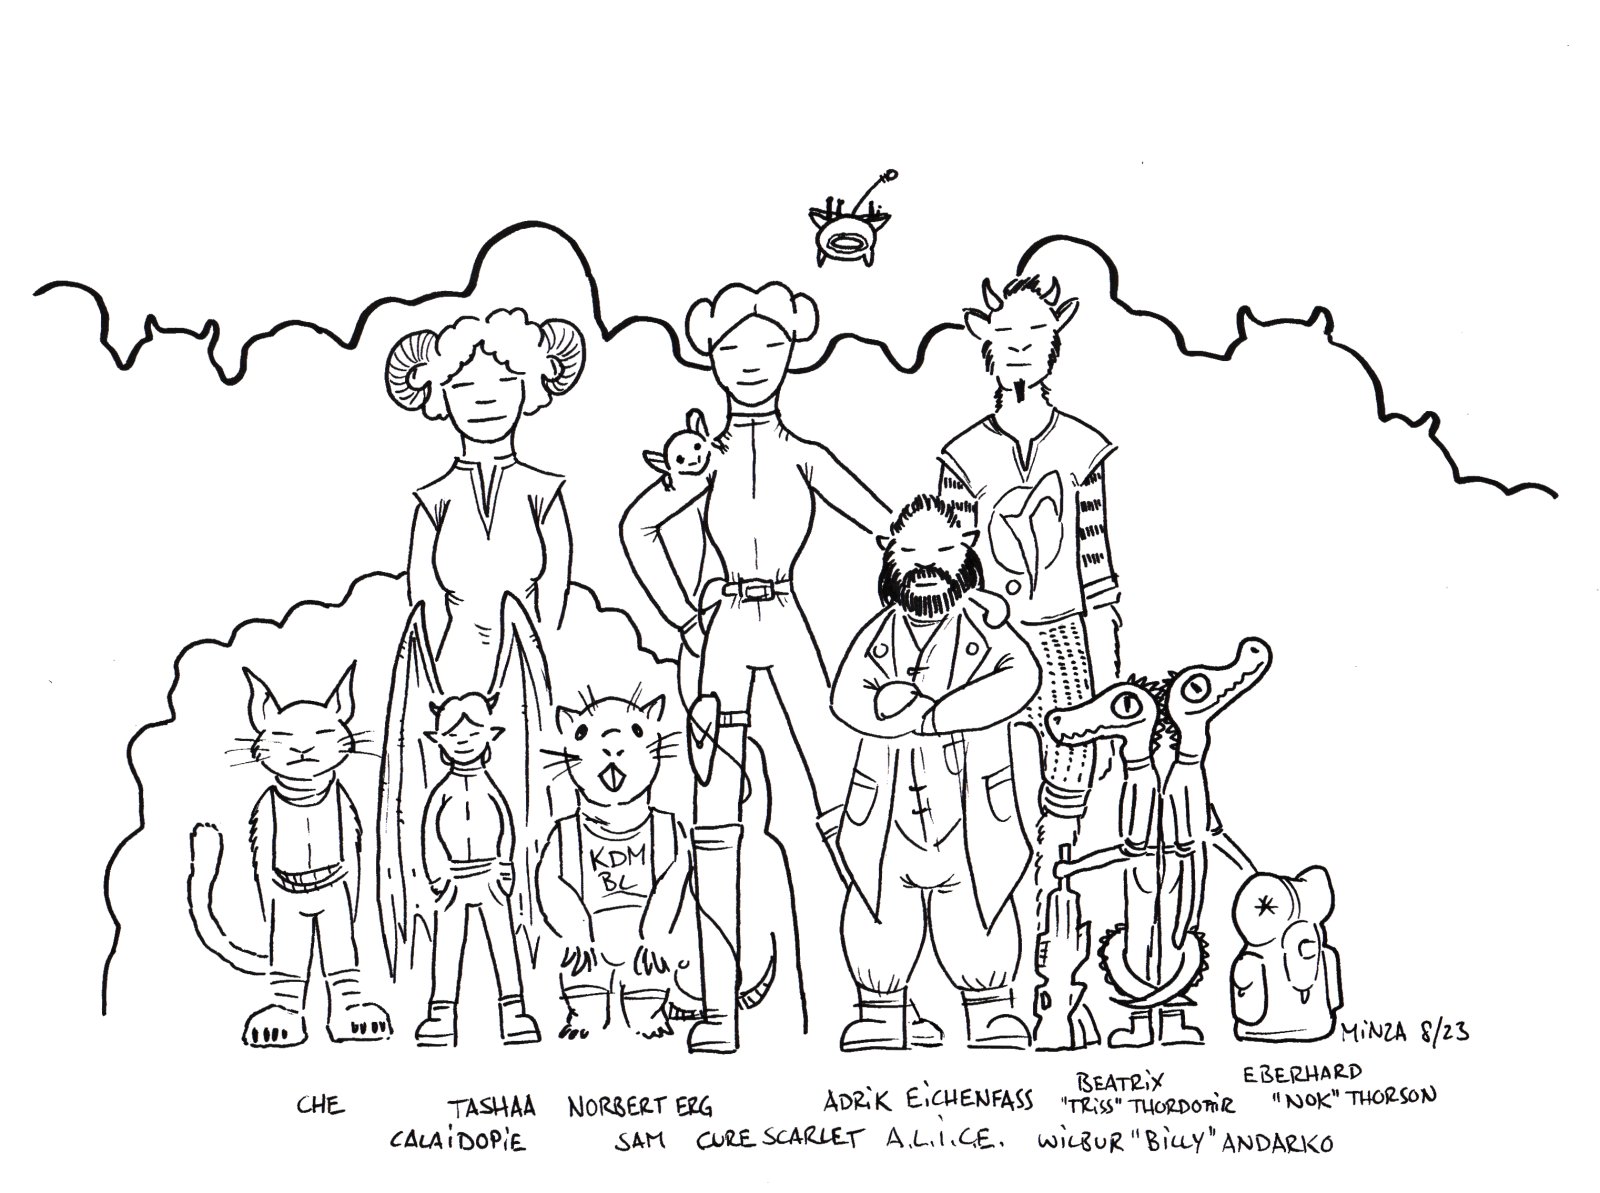 KDM
BL
MINZA 8/23
CHE
TASHAA
NORBERT ERG
ADRIK EICHENFASS
BEATRIX
"TRISS" THORDOTTIR
EBERHARD
"NOK" THORSON
CALAIDOPIE
SAM
CURE SCARLET
A.L.I.C.E.
WILBUR "BILLY" ANDARKO